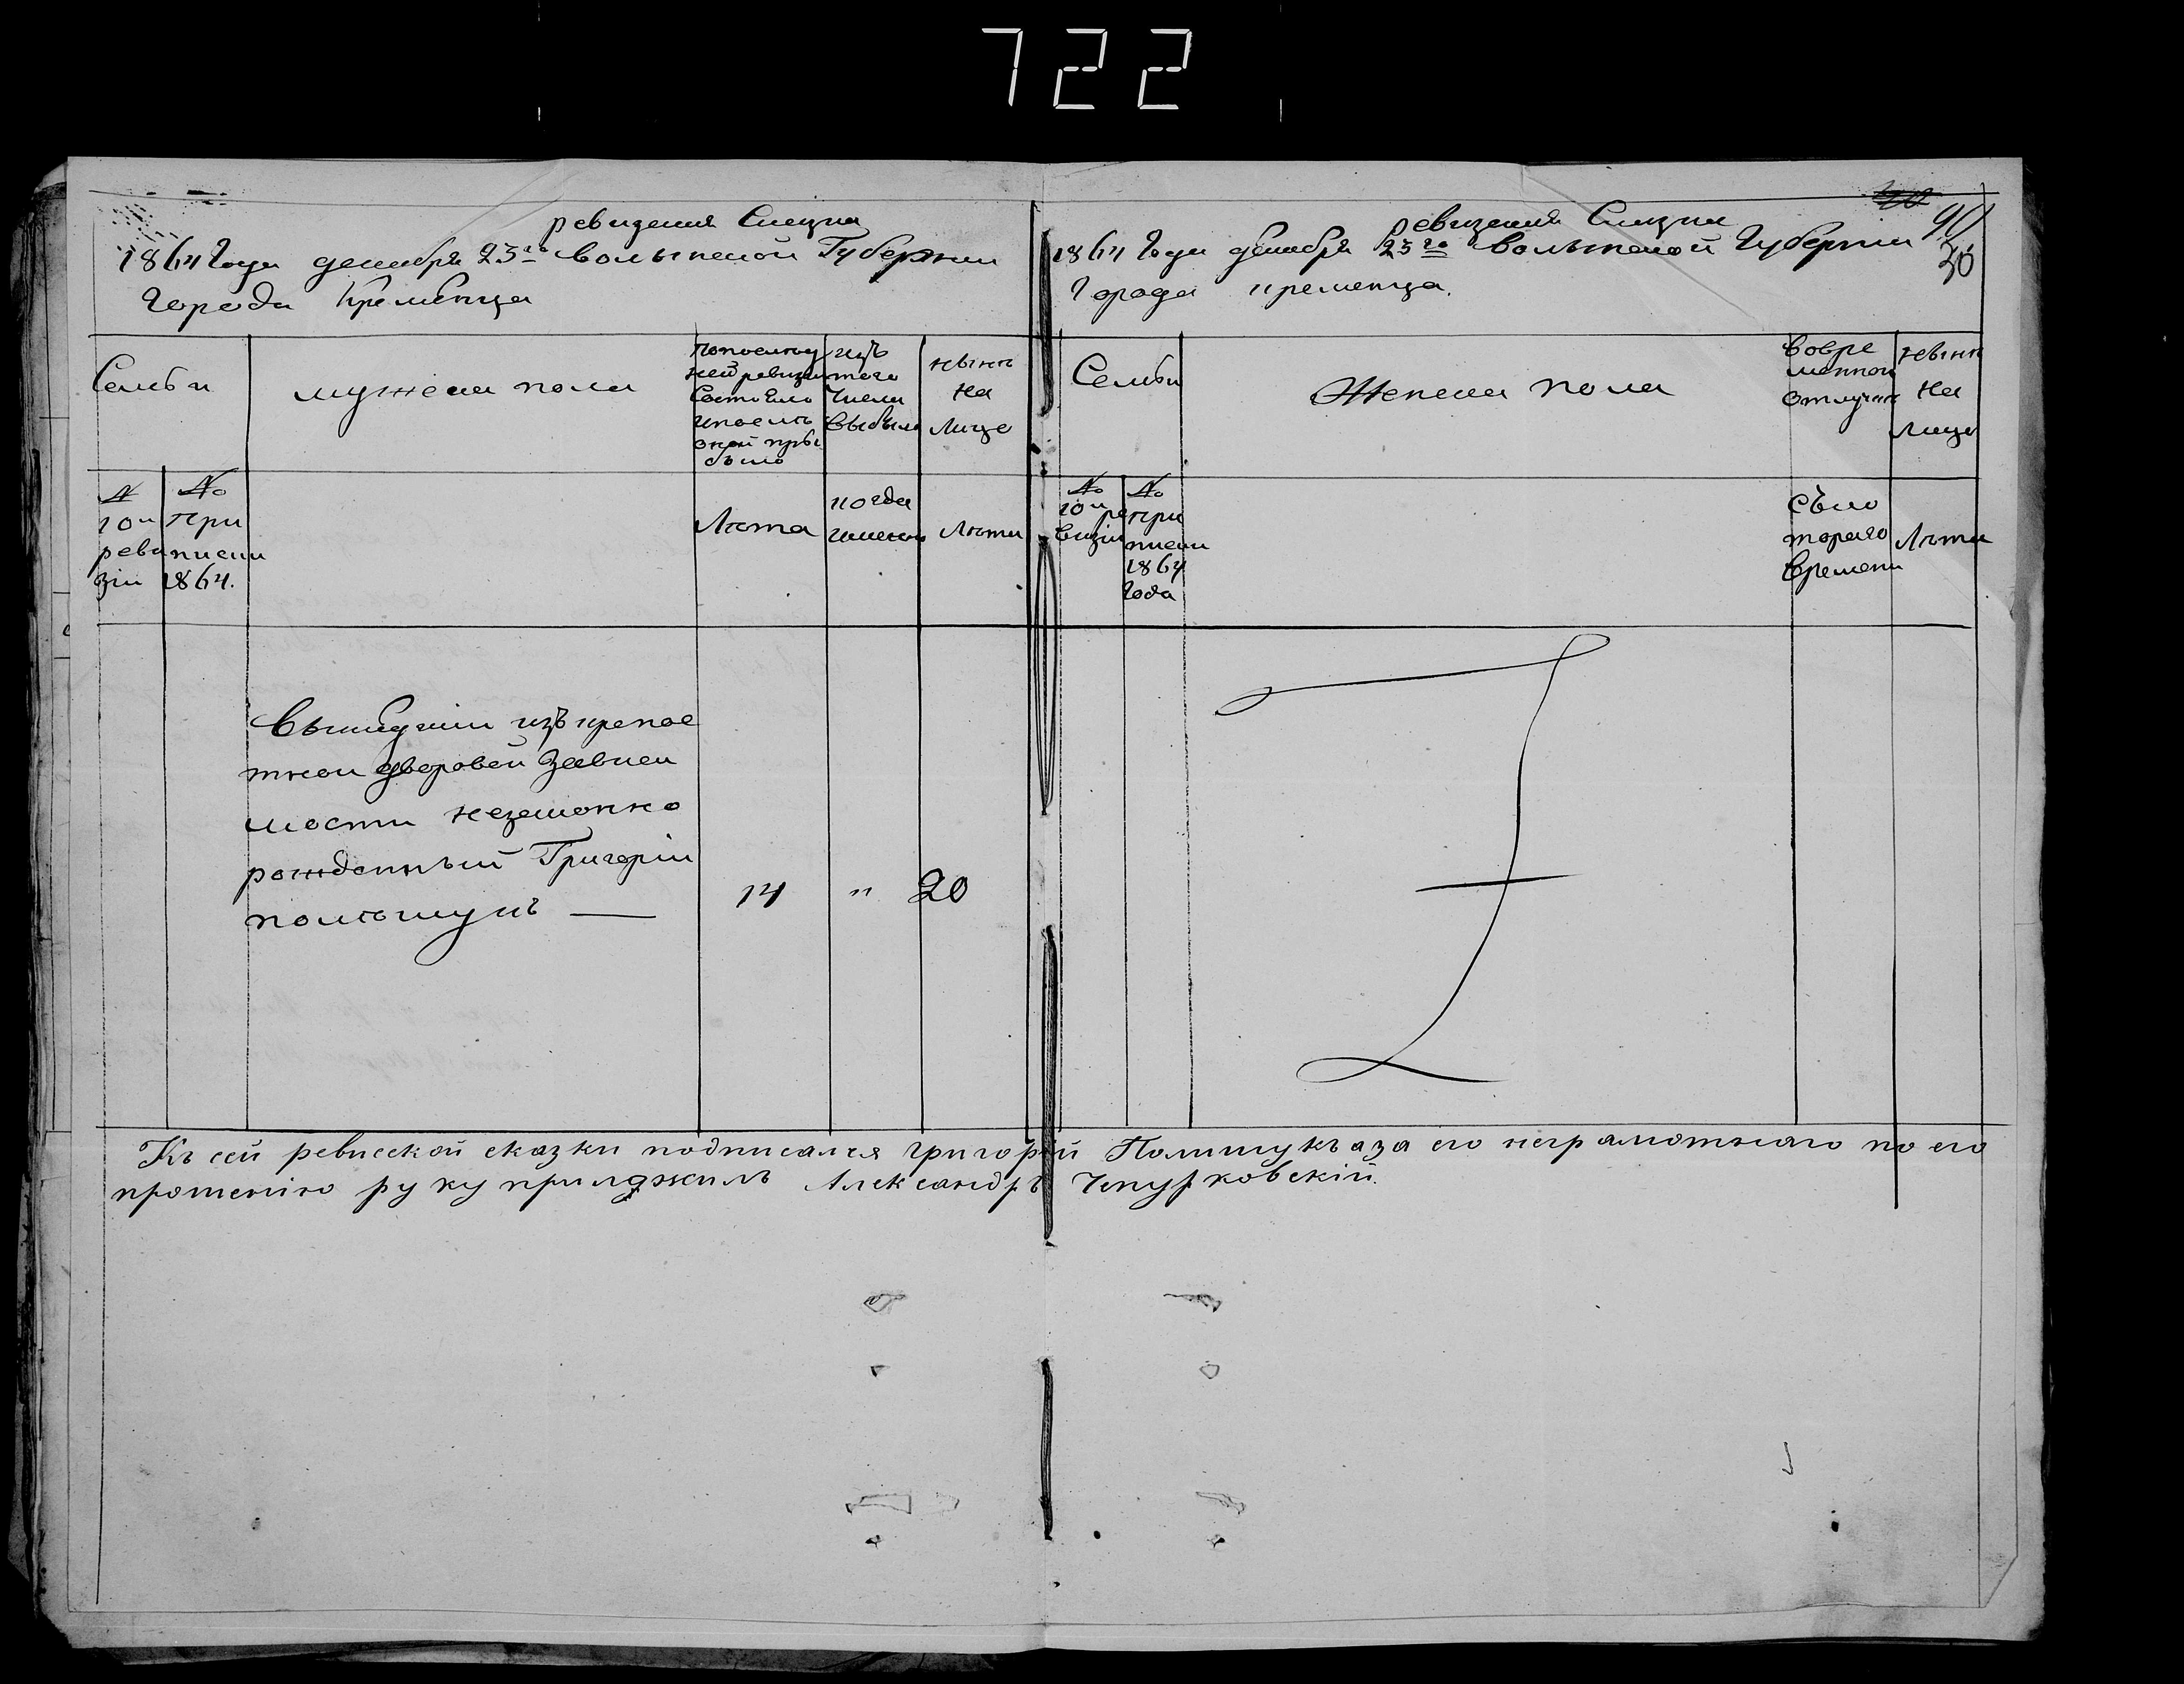 722
ревизская Сказка
1864 Года декабря 23го Волынской Губернии
Города Кременца
Семьи
мужеска пола
попослед
ней ревизии
Состояло
ипослъ
оной при
было
изъ
того
числа
выбыло
нынъ
на
лице
№
10й
реви
зiи
№
при
писки
1864.
Лъта
когда
именно
Лъта
Вышедшiи изъ крепос
тной дворовой Зависи
мости незаконно
рожденный Григорiи
полѣщукъ —
14 " 20
ревизская Сказка
1864 Года декабря 23го Волынской Губернии
Города кременца.
40
90
30
Семьи
Женска пола
вовре
менной
отлучке
нынъ
на
лице
№
10й ре
визiи
№
при
писки
1864
Года
Съко
тораго
времени
Лъта
Къ сей ревисской сказки подписался григорiй Полишукъ аза его неграмотнаго по его
прошенiю руку приложилъ Александръ Чепурковскiй.